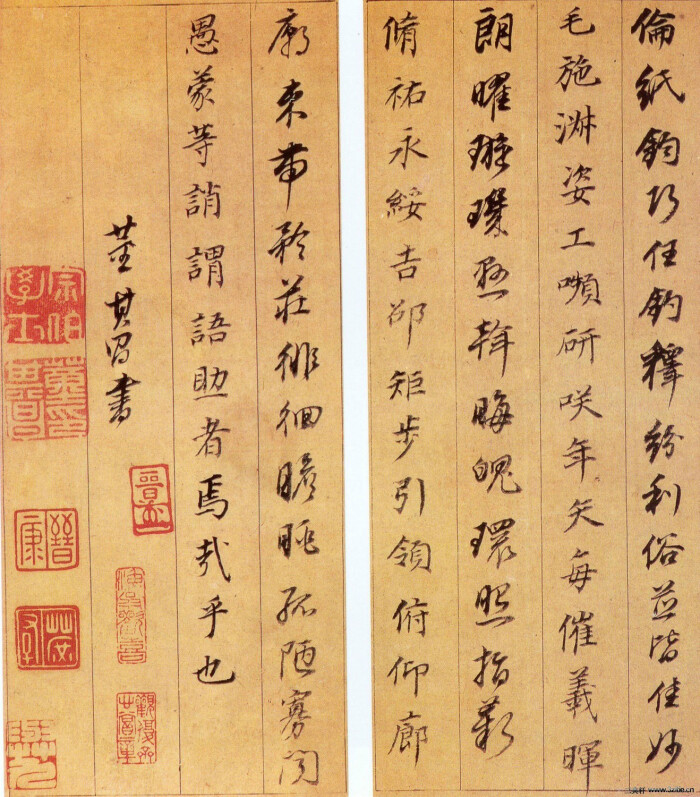 倫紙鈞巧任釣釋紛利俗並皆佳妙
毛施淑姿工嚬研咲年矢每催羲暉
朗曜璇璣懸斡晦魄環照指薪
脩祐永綏吉邵矩步引領俯仰廊
廟束帶矜莊徘徊瞻眺孤陋寡聞
愚蒙等誚謂語助者焉哉乎也
董其昌書
宗伯學士